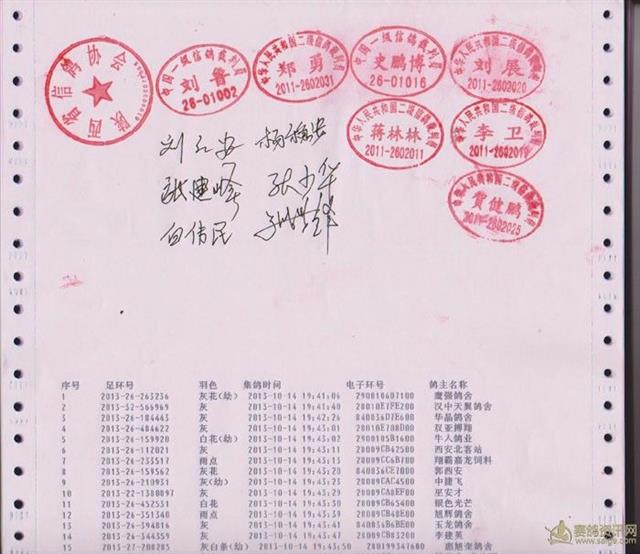 陕西省信鸽协会
中国一级信鸽裁判员
刘鲁
26-01002
中华人民共和国二级信鸽裁判员
郑勇
2011-2602031
中国一级信鸽裁判员
史鹏博
26-01016
中华人民共和国二级信鸽裁判员
刘展
2011-2602020
中华人民共和国二级信鸽裁判员
蒋林林
2011-2602011
中华人民共和国二级信鸽裁判员
李卫
中华人民共和国二级信鸽裁判员
贺健鹏
2011-2602025
张建峰 张少华
白伟民
序号 足环号 羽色 集鸽时间 电子环号 鸽主名称
1 2013-26-263236 灰花(幼) 2013-10-14 19:41:06 290010607100 鹰强鸽舍
2 2013-32-566969 灰 2013-10-14 19:41:40 28010E7FE200 汉中天翼鸽舍
3 2013-26-184443 灰 2013-10-14 19:42:26 华晶鸽舍
4 2013-26-484622 灰 2013-10-14 19:43:01 双亚搏翔
5 2013-26-159920 白花(幼) 2013-10-14 19:43:02 2900105B1600 牛人鸽业
6 2013-26-112021 灰 2013-10-14 19:43:11 28009CB42500 西安北客站
7 2013-26-233517 雨点 2013-10-14 19:43:13 28009CC6B700 翔霸嘉龙饲料
8 2013-26-159562 灰花(幼) 2013-10-14 19:43:20 840036CE7000 郭西安
9 2013-26-210931 灰(幼) 2013-10-14 19:43:23 28009CAC4500 中捷飞
10 2013-22-1380897 灰 2013-10-14 19:43:29 28009CA8EF00 巫安才
11 2013-26-452531 白花 2013-10-14 19:43:31 银色光芒
12 2013-26-351340 雨点 2013-10-14 19:43:39 旭辉鸽舍
13 2013-26-394816 灰 2013-10-14 19:43:41 玉龙鸽舍
14 2013-26-344359 灰 2013-10-14 19:43:44 28009CB83200 李建英
15 2013-27-208285 灰白条(幼) 2013-10-14 19:43:50 280199347600 惠旭奎鸽舍
赛鸽资讯网
www.saige.com